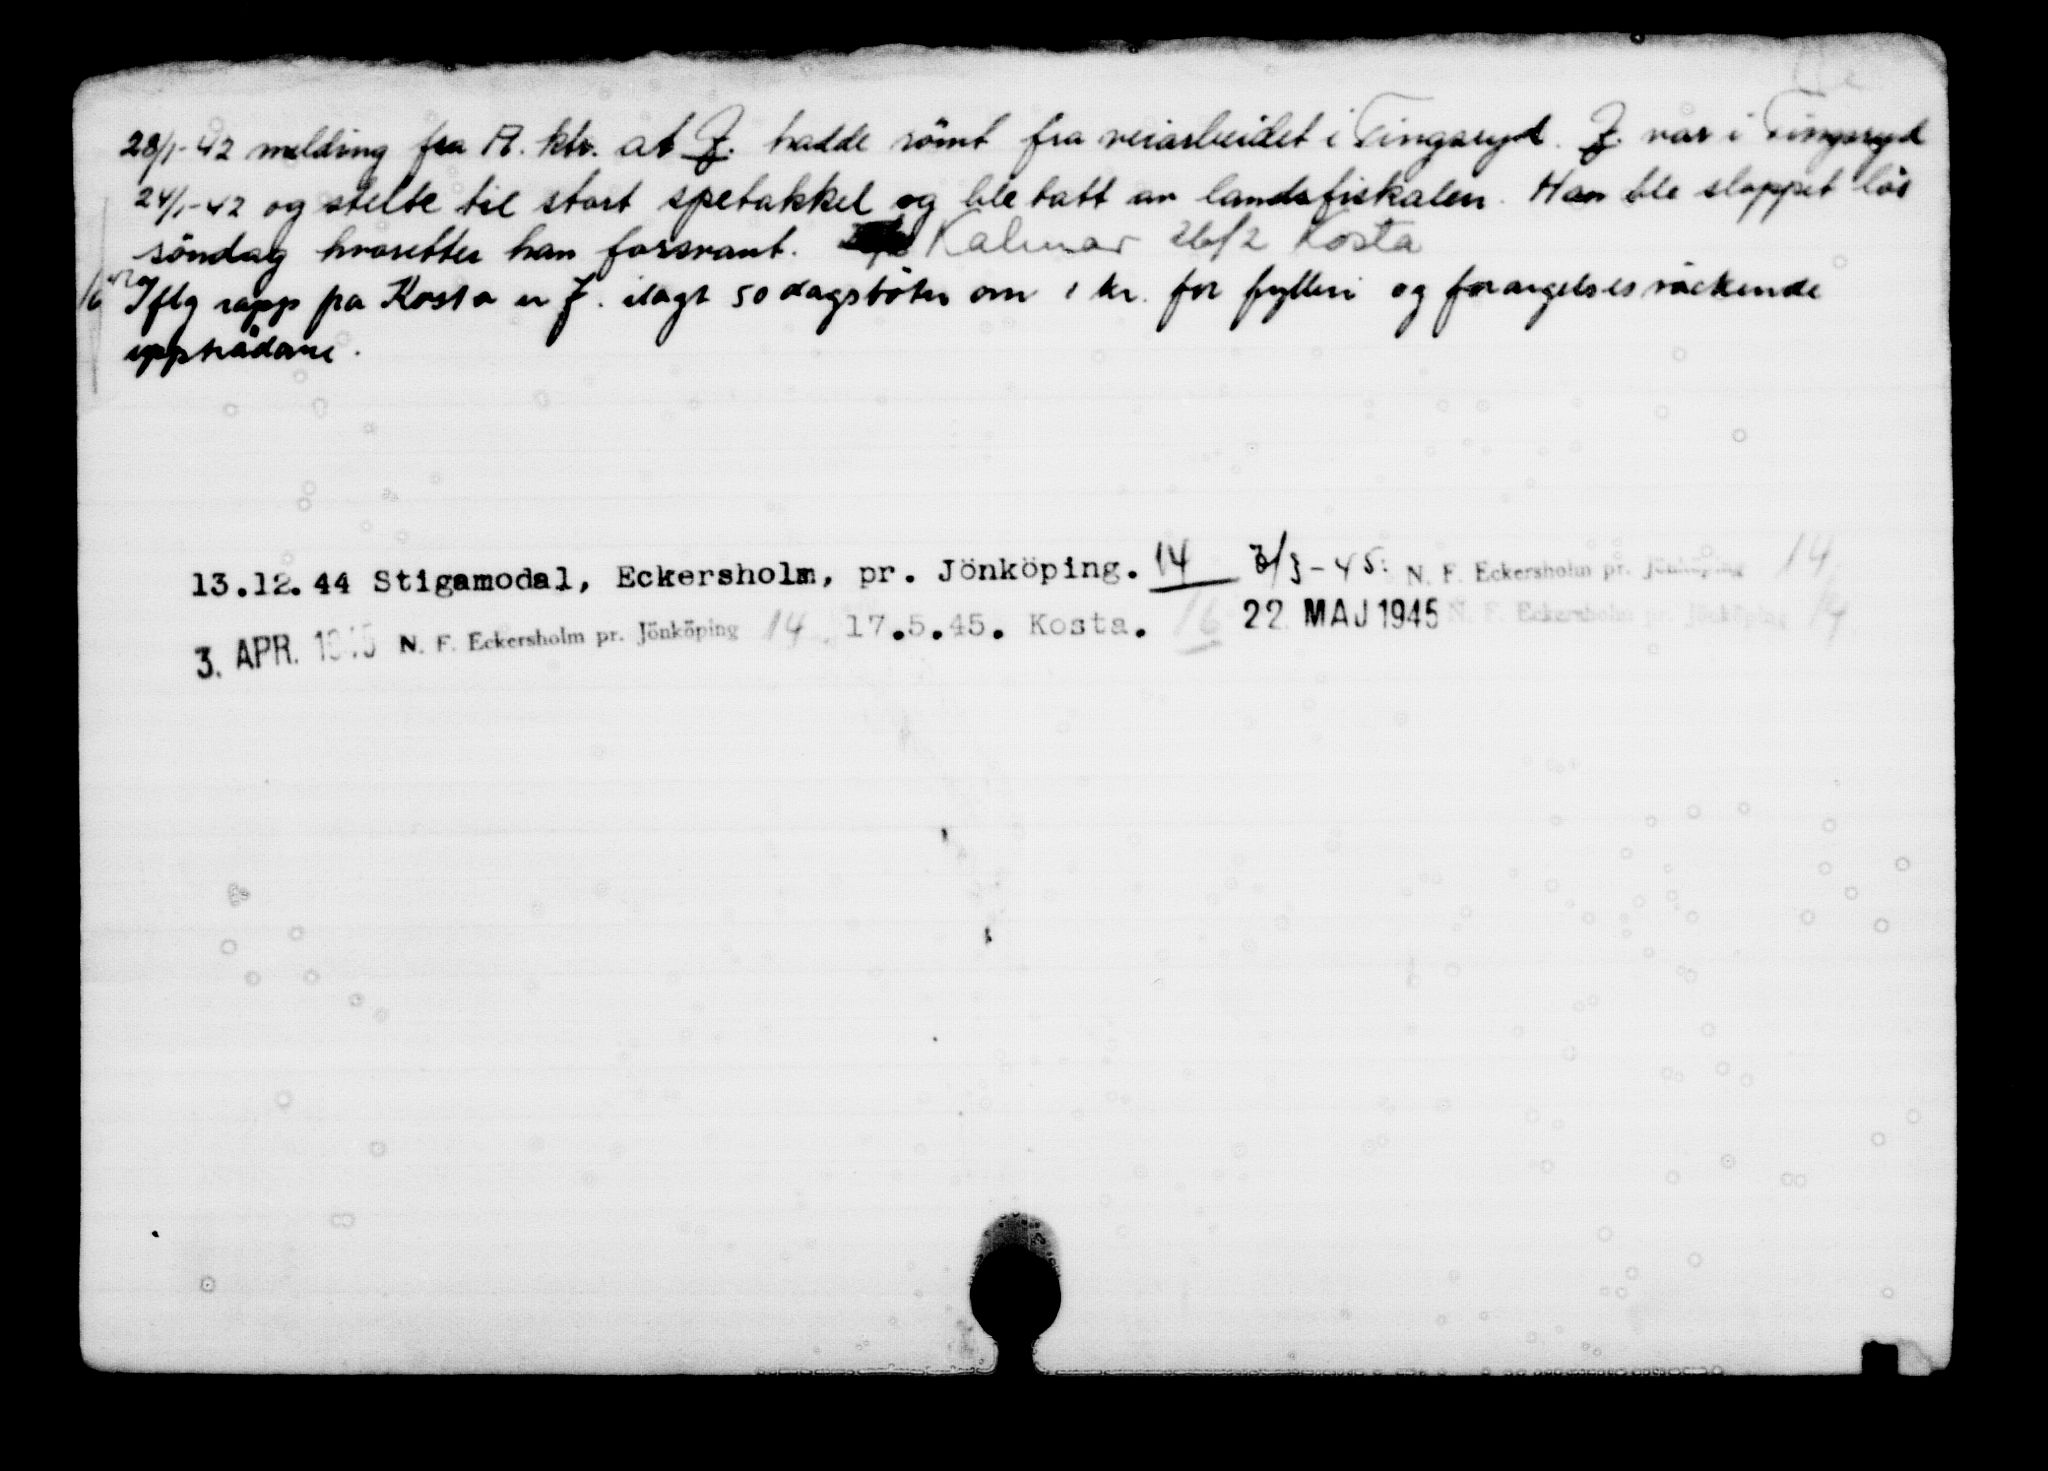 28/1-42 melding fra A. ktr. at J. hadde römt fra veiarbeidet i Tingsryd. J. var i Tingsryd
24/1-42 og stelte til stort spetakkel og ble tatt av landsfiskalen. Han ble sloppet lös
söndag hvoretter han forsvant. Kalmar 26/2 Kosta
Iflg rapp fra Kosta er J. ilagt 50 dagsböter om 1 kr. for fylleri og forargelsesväckende
uppträdane.
13.12.44 Stigamodal, Eckersholm, pr. Jönköping. 14 3/3-45: N. F. Eckersholm pr. Jönköping 14
3. APR. 1945 N. F. Eckersholm pr. Jönköping 14. 17.5.45. Kosta. 16 22 MAJ 1945 N. F. Eckersholm pr. Jönköping 14